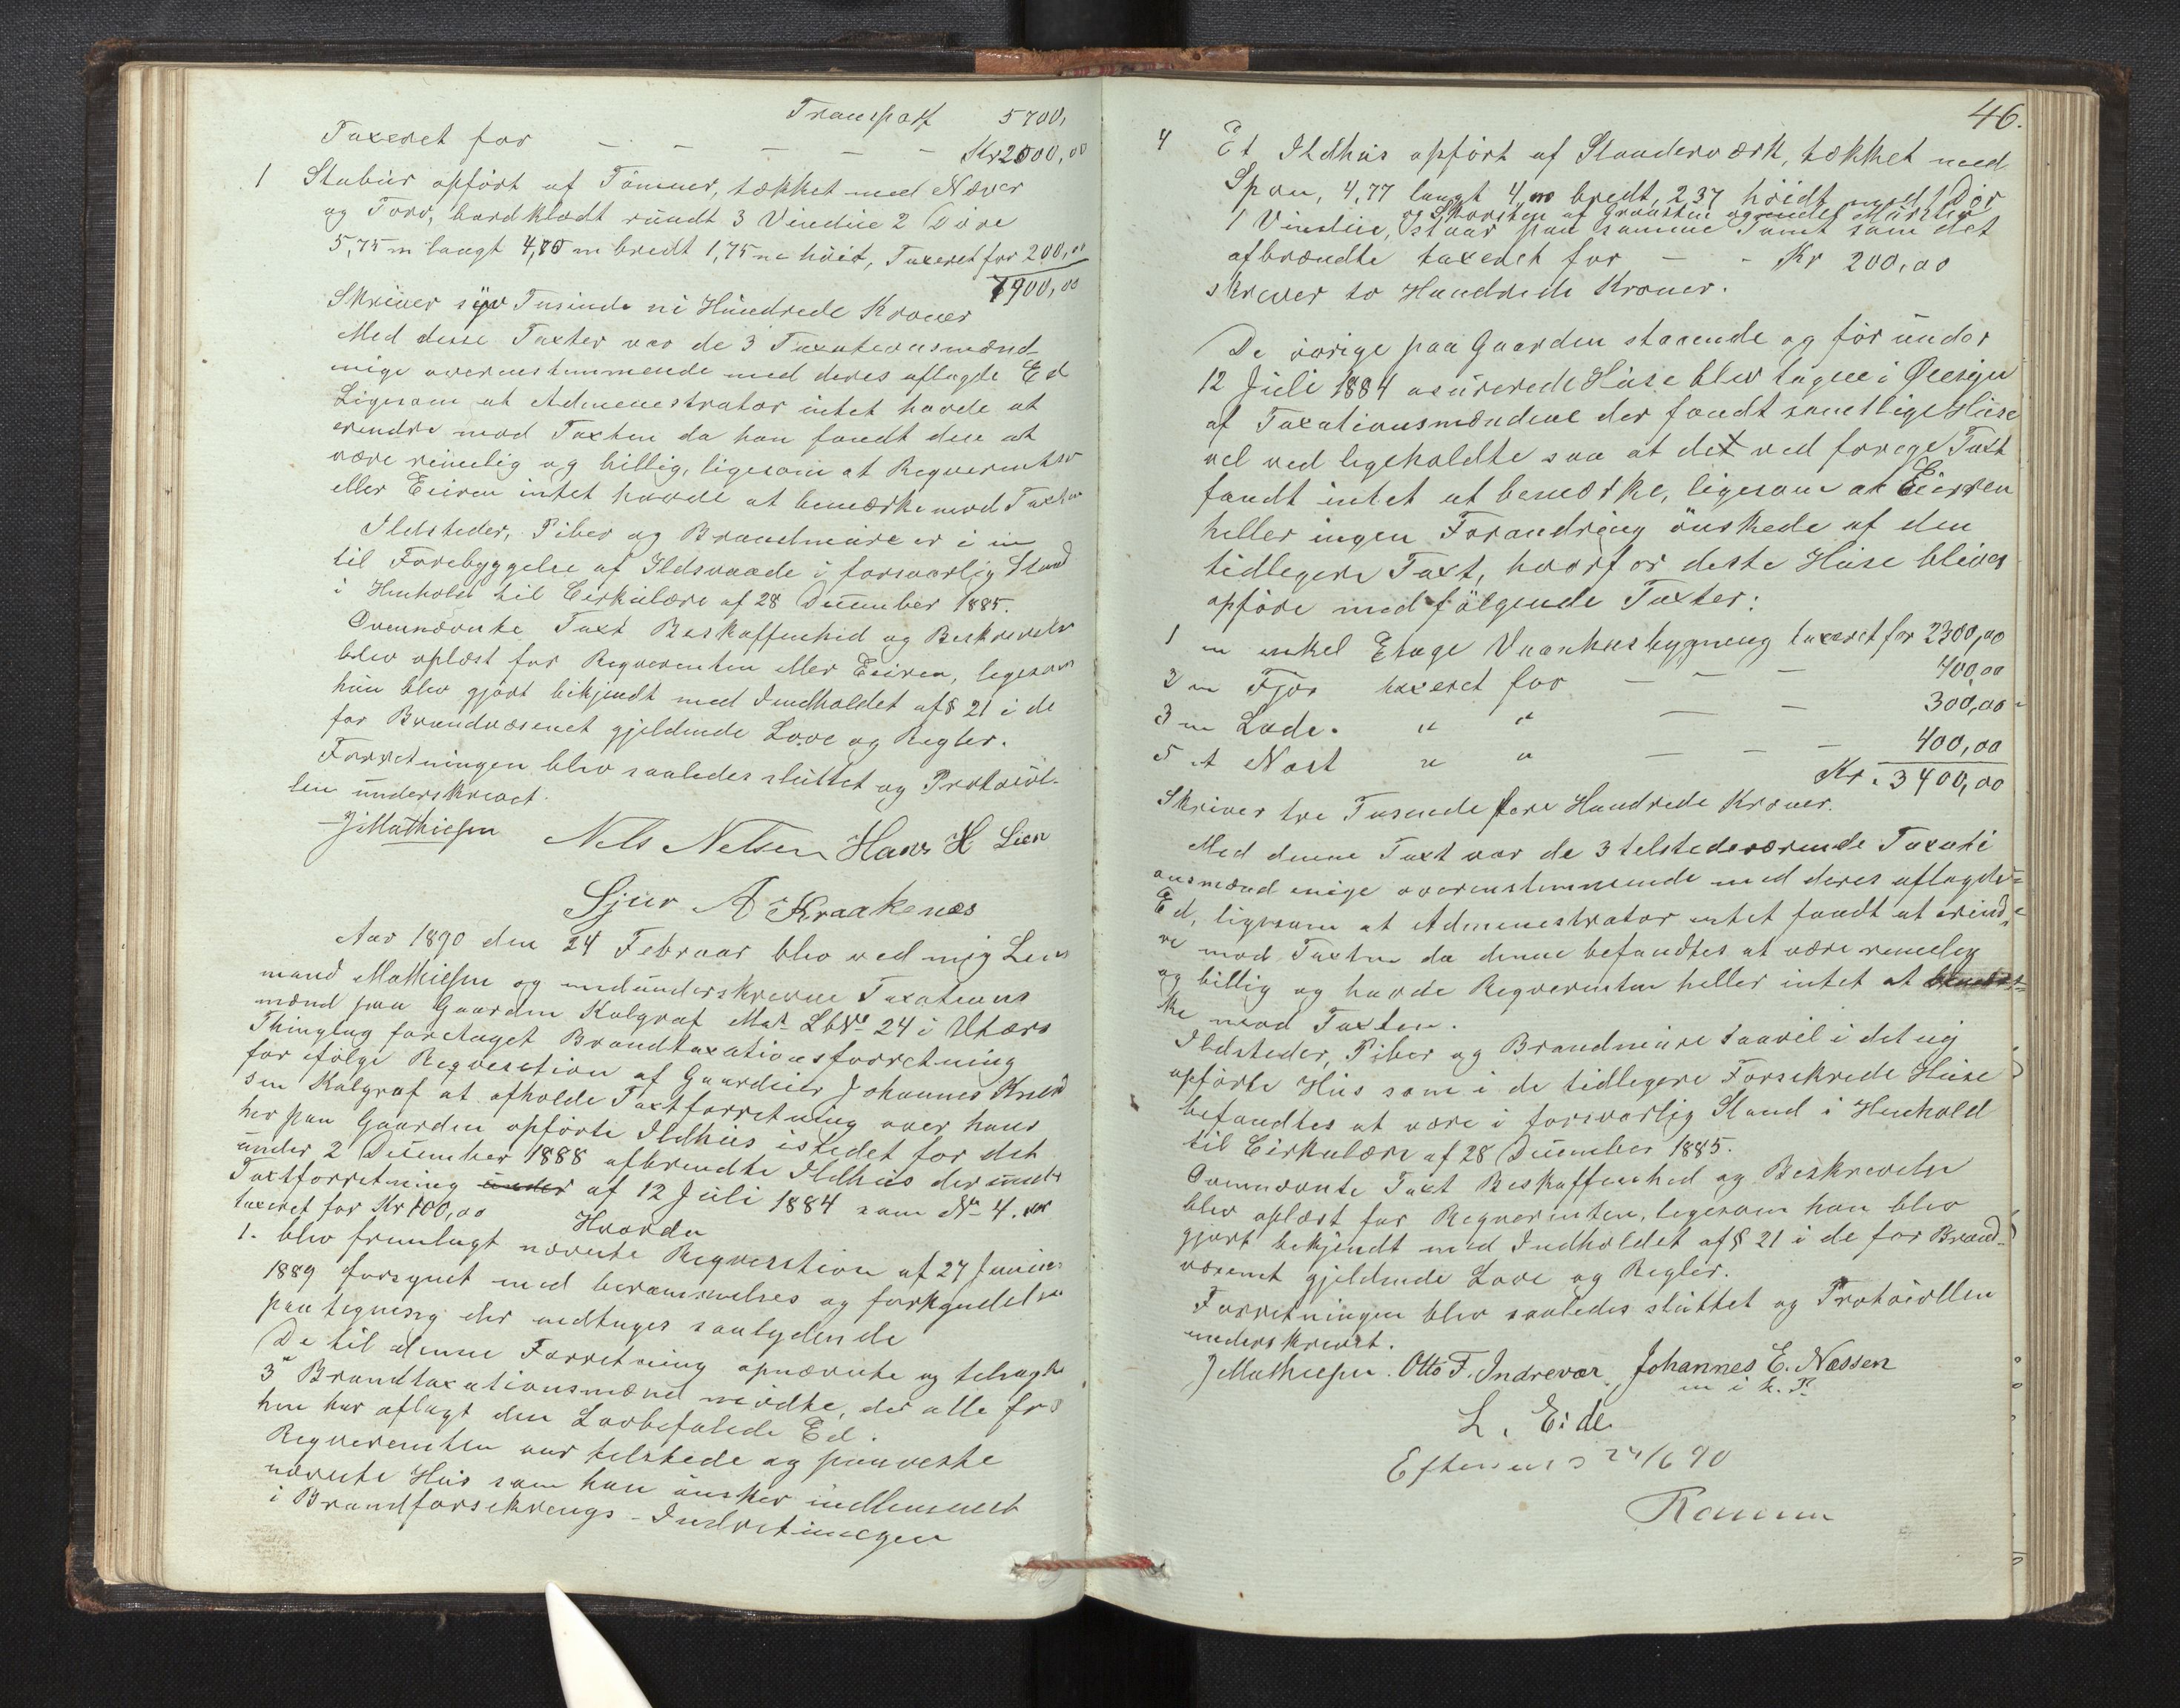 Transport 5700,
Taxeret for — — — — — Kr 2000,00
1 Stabur opført af Tømmer, tækket med Næver
og Torv, bordklædt rundt 3 Vindue 2 Døre
5,75 m langt 4,70 m bredt 1,75 m høit, Taxeret for 200,00
7900,00
Skriver syv Tusinde ni Hundrede Kroner
Med disse Taxter var de 3 Taxationsmænd
enige overenstemmende med deres aflagte Ed
Ligesom at Administrator intet havde at
erindre mod Taxten da han fandt den at
være rimelig og billig, ligesom at Reqverenten
eller Eieren intet havde at bemærke mod Taxten
Ildsteder, Piber og Brandmure er i en
til Forebyggelse af Ildsvaade i forsvarlig Stand
i Henhold til Cirkulære af 28 December 1885.
Ovennævnte Taxt Beskaffenhed og Beskrivelse
blev oplæst for Reqverenten eller Eieren, ligesom
hun blev gjort bekjendt med Indholdet af § 21 i de
for Brandvæsenet gjeldende Love og Regler.
Forretningen blev saaledes sluttet og Protocol-
len underskrevet.
J Mathiesen Nels Nelsen Hans H Lien
Sjur A Kraakenes
Aar 1890 den 24 Februar blev ved mig Lens
mand Mathiesen og medunderskrevne Taxations
mænd paa Gaarden Kalgraf Mat. LbNo 24 i Utvær
Thinglag foretaget Brandtaxationsforretning
for ifølge Reqvesition af Gaardeier Johannes Knud
sen Kalgraf at afholde Taxtforretning over hans
her paa Gaarden opførte Ildhus istedet for det
under 2 December 1888 afbrendte Ildhus der under
Taxtforretning under af 12 Juli 1884 som No 4. er
taxeret for Kr 100,00 Hvorda
1. blev fremlagt nævnte Reqvesition af 27 Juni
1889 forsynet med berammelses og forkyndelses
paategning der vedtages saalydende
De til denne Forretning opnævnte og tilsagte
3de Brandtaxationsmænd mødte, der alle før
hen har aflagt den Lovbefalede Ed.
Reqverenten var tilstede og paaviste
nævnte Hus som han ønsker indlemmet
i Brandforsikrings-Indretningen
46.
4 Et Ildhus opført af Standerværk, tækket med
Spon, 4,77 langt 4,00 bredt, 2,37 høidt med 1 Dør
og Skorsten af Graasten og endel Mursten
1 Vindue, staar paa samme Tomt som det
afbrændte taxeret for — - Kr 200,00
skriver to Hundrede Kroner.
De øvrige paa Gaarden staaende og før under
12 Juli 1884 asurerede Huse blev tagne i Øiesyn
af Taxationsmændene der fandt samtlige Huse
vel ved ligeholdte saa at det ved forrige Taxt
fandt intet at bemærke, ligesom at Eieren
heller ingen Forandring ønskede af den
tidligere Taxt, hvorfor disse Huse blives
opføre med følgende Taxter:
1 en enkel Etage Vaanhusbygning taxeret for 2300,00
2 en Fjøs taxeret for — — — 400,00
3 en Lade. " " — — 300,00
5 et Nøst " " — — — 400,00
Kr. 3400,00
Skriver tre Tusende fire Hundrede Kroner.
Med denne Taxt var de 3 tilstedeværende Taxati
onsmænd enige overenstemmende med deres aflagde
Ed, ligesom at Administrator intet fandt at erind-
re mod Taxten da denne befandtes at være rimelig
og billig og havde Reqverenten heller intet at bemær-
ke mod Taxten.
Ildsteder, Piber og Brandmure saavel i det ny
opførte Hus som i de tidligere Forsikrede Huse
befandtes at være i forsvarlig Stand i Henhold
til Cirkulære af 28 December 1885.
Ovennævnte Taxt Beskaffenhed og Beskrivelse
blev oplæst for Reqverenten, ligesom han blev
gjort bekjendt med Indholdet af § 21 i de for Brand-
væsenet gjeldende Love og Regler.
Forretningen blev saaledes sluttet og Protocollen
underskrevet.
J Mathiesen. Otto F. Indrevær. Johannes E. Nessen
m i h. P.
L. Eide
Eftersees 24/6 90